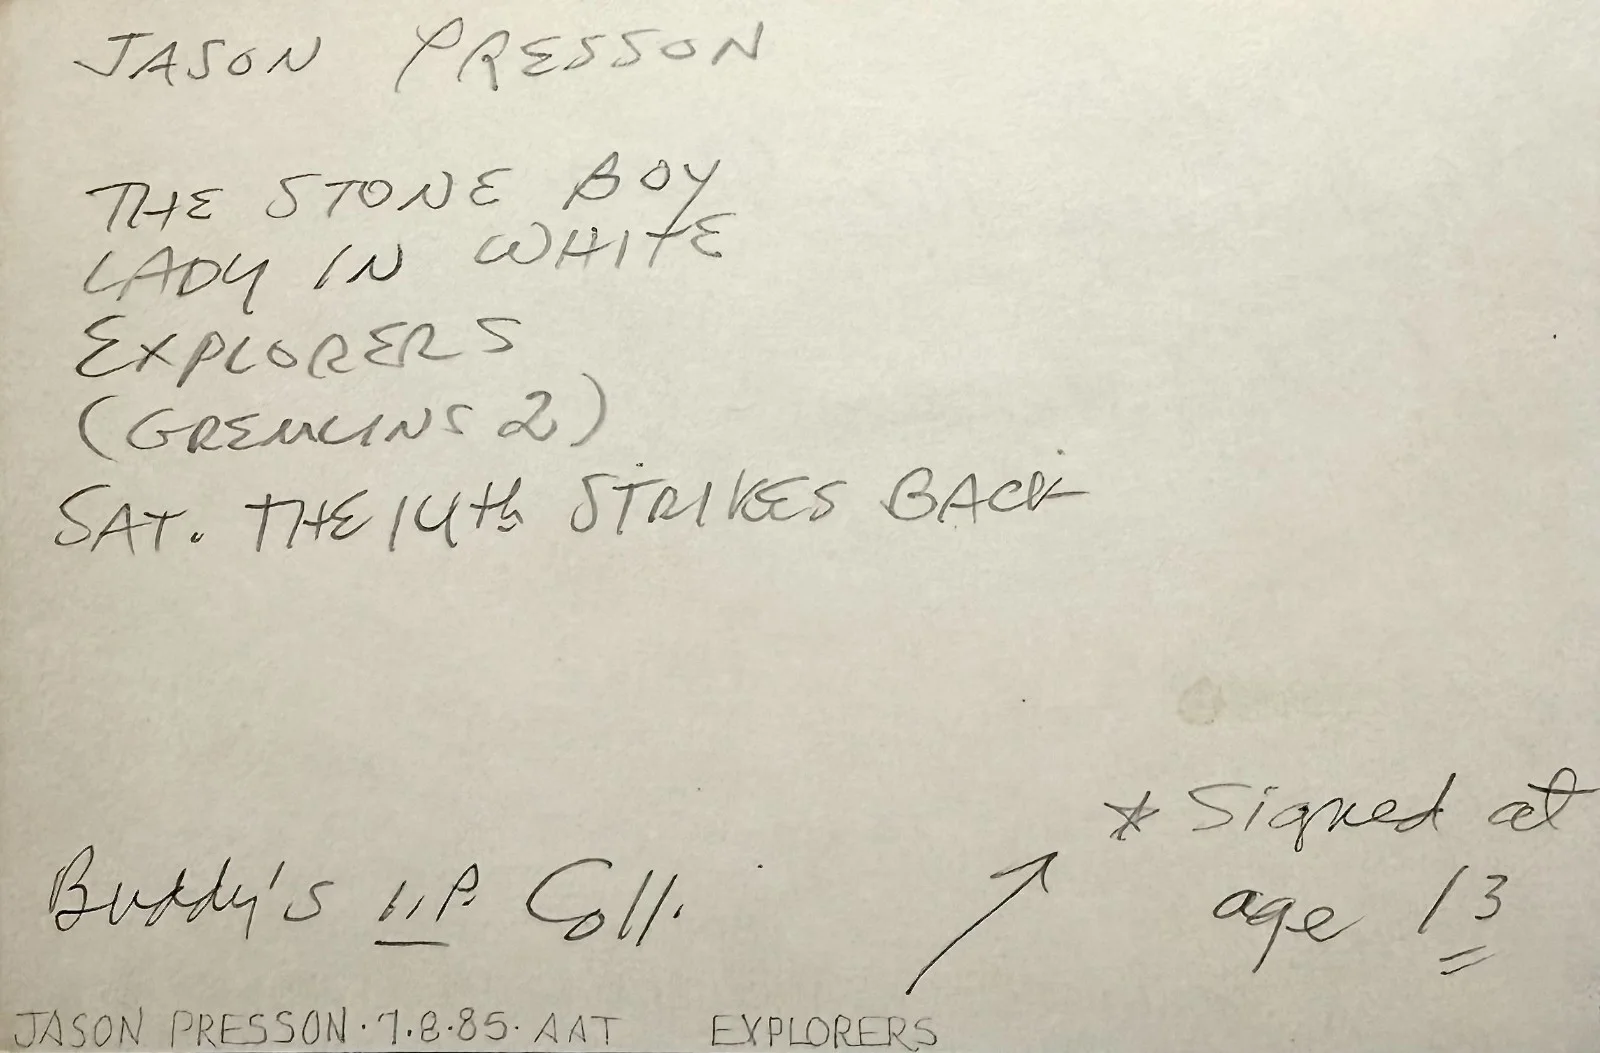 JASON PRESSON
THE STONE BOY
LADY IN WHITE
EXPLORERS
(GREMLINS 2)
SAT. THE 14th STRIKES BACK
* Signed at
age 13
Buddy's Coll.
JASON PRESSON·7·8·85·AAT EXPLORERS